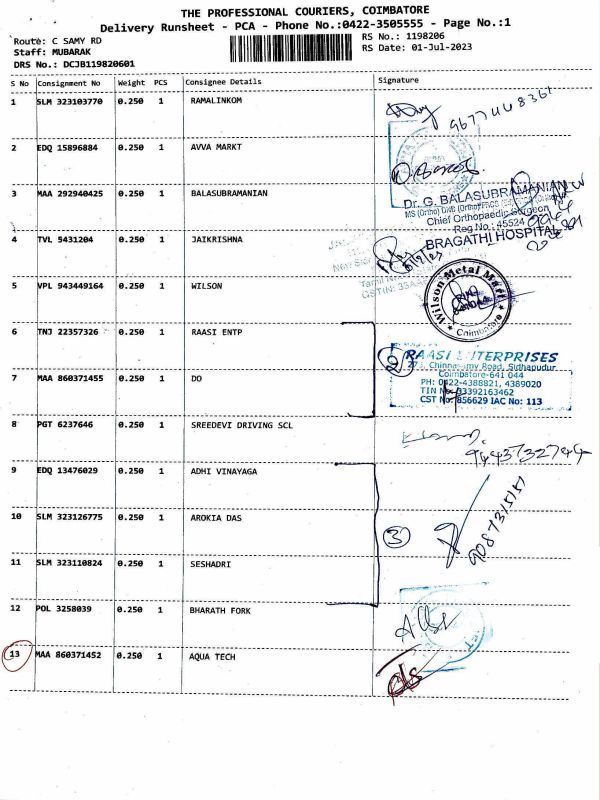 THE PROFESSIONAL COURIERS, COIMBATORE
Delivery Runsheet - PCA - Phone No.:0422-3505555 - Page No.:1
Route: C SAMY RD
RS No.: 1198206
Staff: MUBARAK
RS Date: 01-Jul-2023
DRS No.: DCJB119820601
S No Consignment No Weight PCS Consignee Details Signature
1 SLM 323103770 0.250 1 RAMALINKOM
2 EDQ 15896884 0.250 1 AVVA MARKT
3 MAA 292940425 0.250 1 BALASUBRAMANIAN
Dr. G. BALASUBRAMANIAN
Chief Orthopaedic Surgeon
Reg No : 45524
BRAGATHI HOSPITAL
4 TVL 5431204 0.250 1 JAIKRISHNA
5 VPL 943449164 0.250 1 WILSON
Wilson Metal Mart
Coimbatore
6 TNJ 22357326 0.250 1 RAASI ENTP
2
RAASI ENTERPRISES
Road, Sidhapudur
Coimbatore-641 044
PH: 0422-4388821, 4389020
TIN No: 33392163462
CST No: 856629 IAC No: 113
7 MAA 860371455 0.250 1 DO
8 PGT 6237646 0.250 1 SREEDEVI DRIVING SCL
9443732744
9 EDQ 13476029 0.250 1 ADHI VINAYAGA
10 SLM 323126775 0.250 1 AROKIA DAS
3
11 SLM 323110824 0.250 1 SESHADRI
12 POL 3258039 0.250 1 BHARATH FORK
13 MAA 860371452 0.250 1 AQUA TECH